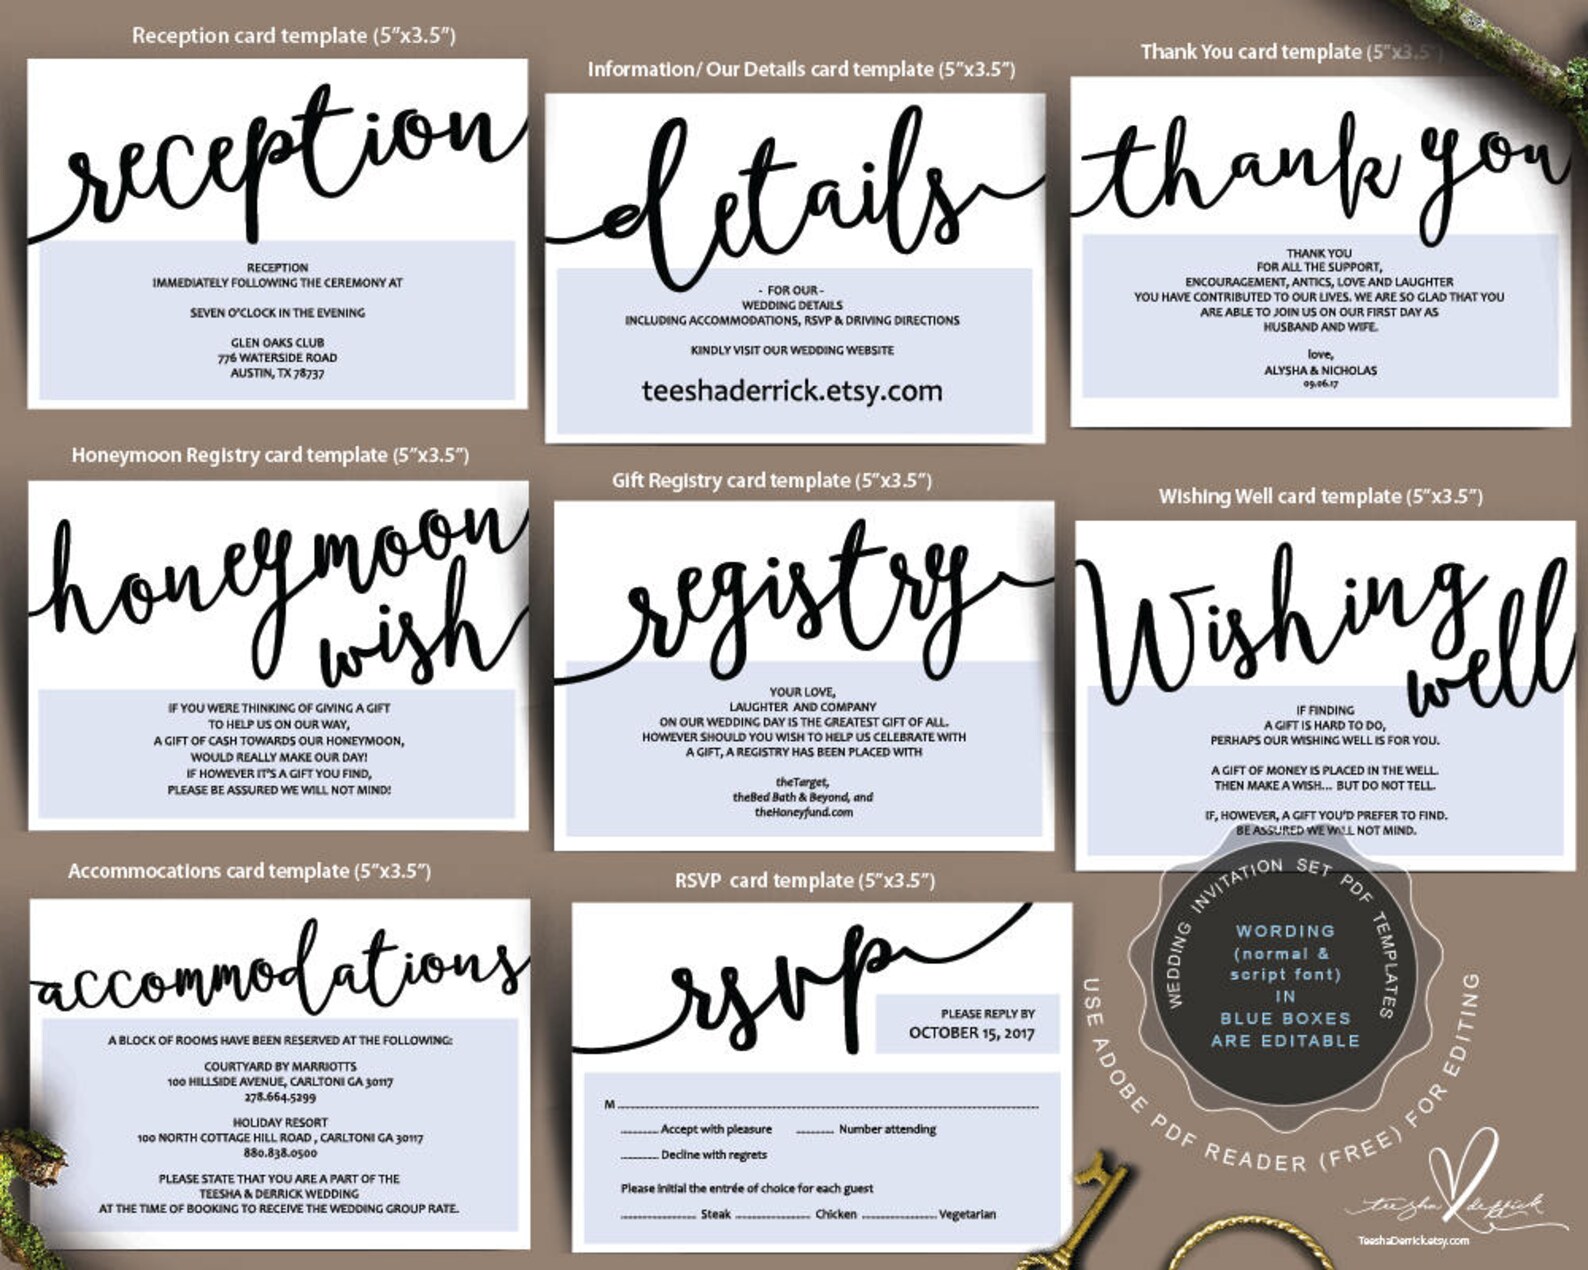 Reception card template (5"x3.5")
reception
RECEPTION
IMMEDIATELY FOLLOWING THE CEREMONY AT
SEVEN O'CLOCK IN THE EVENING
GLEN OAKS CLUB
776 WATERSIDE ROAD
AUSTIN, TX 78737
Information/ Our Details card template (5"x3.5")
details
- FOR OUR -
WEDDING DETAILS
INCLUDING ACCOMMODATIONS, RSVP & DRIVING DIRECTIONS
KINDLY VISIT OUR WEDDING WEBSITE
teeshaderrick.etsy.com
Thank You card template (5"x3.5")
thank you
THANK YOU
FOR ALL THE SUPPORT,
ENCOURAGEMENT, ANTICS, LOVE AND LAUGHTER
YOU HAVE CONTRIBUTED TO OUR LIVES. WE ARE SO GLAD THAT YOU
ARE ABLE TO JOIN US ON OUR FIRST DAY AS
HUSBAND AND WIFE.
love,
ALYSHA & NICHOLAS
09.06.17
Honeymoon Registry card template (5"x3.5")
honeymoon
wish
IF YOU WERE THINKING OF GIVING A GIFT
TO HELP US ON OUR WAY,
A GIFT OF CASH TOWARDS OUR HONEYMOON,
WOULD REALLY MAKE OUR DAY!
IF HOWEVER IT'S A GIFT YOU FIND,
PLEASE BE ASSURED WE WILL NOT MIND!
Gift Registry card template (5"x3.5")
registry
YOUR LOVE,
LAUGHTER AND COMPANY
ON OUR WEDDING DAY IS THE GREATEST GIFT OF ALL.
HOWEVER SHOULD YOU WISH TO HELP US CELEBRATE WITH
A GIFT, A REGISTRY HAS BEEN PLACED WITH
theTarget,
theBed Bath & Beyond, and
theHoneyfund.com
Wishing Well card template (5"x3.5")
Wishing
well
IF FINDING
A GIFT IS HARD TO DO,
PERHAPS OUR WISHING WELL IS FOR YOU.
A GIFT OF MONEY IS PLACED IN THE WELL.
THEN MAKE A WISH... BUT DO NOT TELL.
IF, HOWEVER, A GIFT YOU'D PREFER TO FIND.
BE ASSURED WE WILL NOT MIND.
Accommocations card template (5"x3.5")
accommodations
A BLOCK OF ROOMS HAVE BEEN RESERVED AT THE FOLLOWING:
COURTYARD BY MARRIOTTS
100 HILLSIDE AVENUE, CARLTONI GA 30117
278.664.5299
HOLIDAY RESORT
100 NORTH COTTAGE HILL ROAD , CARLTONI GA 30117
880.838.0500
PLEASE STATE THAT YOU ARE A PART OF THE
TEESHA & DERRICK WEDDING
AT THE TIME OF BOOKING TO RECEIVE THE WEDDING GROUP RATE.
RSVP card template (5"x3.5")
rsvp
PLEASE REPLY BY
OCTOBER 15, 2017
M
Accept with pleasure Number attending
Decline with regrets
Please initial the entrée of choice for each guest
Steak Chicken Vegetarian
WEDDING INVITATION SET PDF TEMPLATES
WORDING
(normal &
script font)
IN
BLUE BOXES
ARE EDITABLE
USE ADOBE PDF READER (FREE) FOR EDITING
teesha derrick
TeeshaDerrick.etsy.com